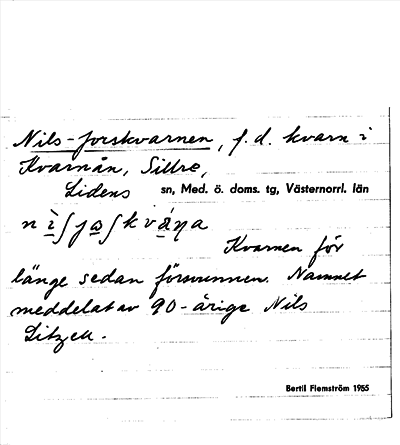 Nils-forskvarnen, f.d. kvarn i
Kvarnån, Sillre,
Lidens sn, Med. ö. doms. tg, Västernorrl. län
Kvarnen för
länge sedan försvunnen. Namnet
meddelat av 90-årige Nils
Bertil Flemström 1955